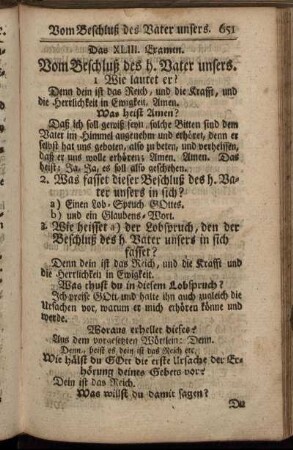 Vom Beschluß des Vater unsers. 651
Das XLIII. Examen.
Vom Beschluß des h. Vater unsers.
1 Wie lautet er?
Denn dein ist das Reich, und die Krafft, und
die Herrlichkeit in Ewigkeit. Amen.
Was heist Amen?
Daß ich soll gewiß seyn, solche Bitten sind dem
Vater im Himmel angenehm und erhöret, denn er
selbst hat uns geboten, also zu beten, und verheissen,
daß er uns wolle erhören: Amen. Amen. Das
heist: Ja, Ja, es soll also geschehen.
2. Was fasset dieser Beschluß des h. Va-
ter unsers in sich?
a) Einen Lob-Spruch GOttes.
b) und ein Glaubens-Wort.
3. Wie heisset a) der Lobspruch, den der
Beschluß des h. Vater unsers in sich
fasset?
Denn dein ist das Reich, und die Krafft und
die Herrlichkeit in Ewigkeit.
Was thust du in diesem Lobspruch?
Ich preise GOtt und halte ihn auch zugleich die
Ursachen vor, warum er mich erhören könne und
werde.
Woraus erhellet dieses?
Aus dem vorgesetzten Wörtlein: Denn.
Denn, heist es dein ist das Reich etc.
Wie hälst du GOtt die erste Ursache der Er-
hörung deines Gebets vor?
Dein ist das Reich.
Was willst du damit sagen?
Du